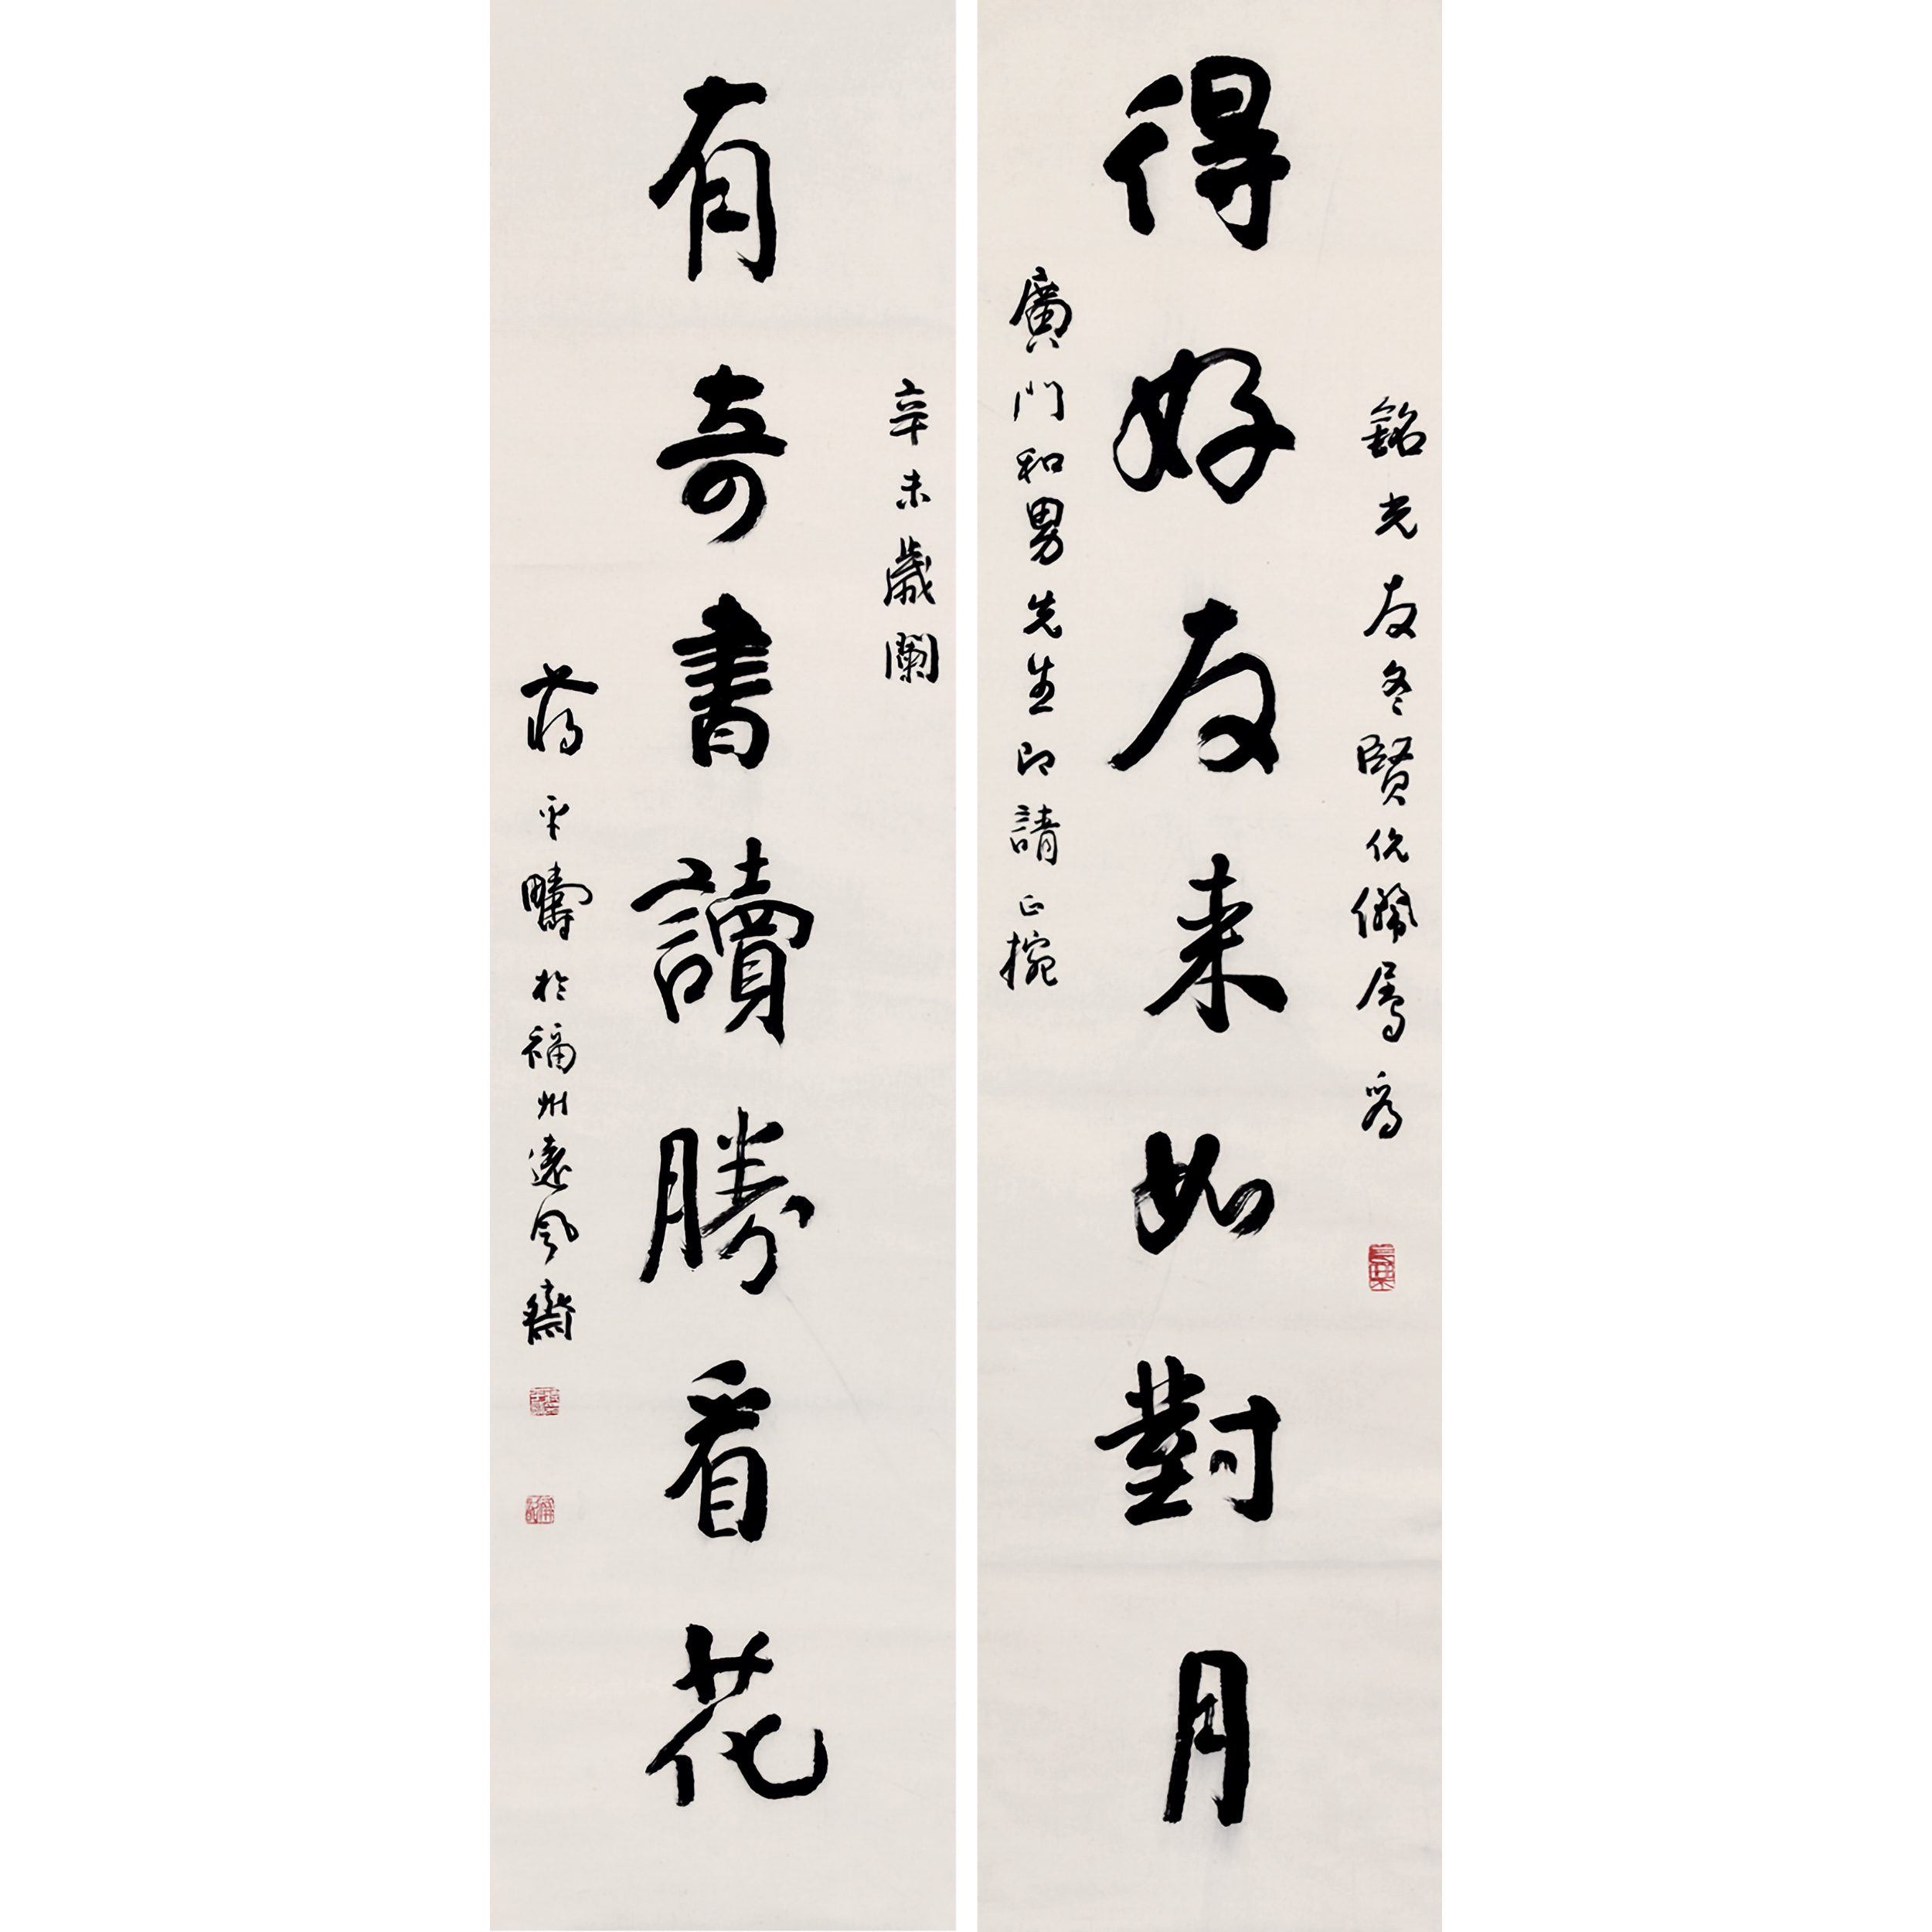 銘光友冬賢伉儷属為
得好友来如對月
廣門和男先生即請正捥
辛未歲闌
有奇書讀勝看花
蒋平疇於福州遠風齋